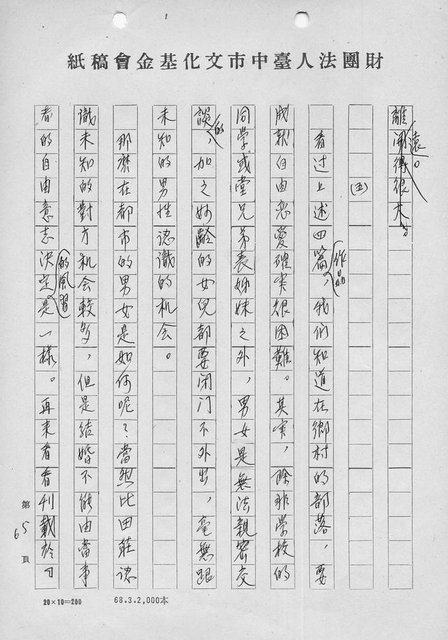 財團法人臺中市文化基金會稿紙
離遠。
(五)
看过上述四篇作品,我們知道在鄉村的部落,要
成就自由恋愛確实很困難。其实,除非学校的
同学或堂兄弟表姊妹之外,男女是無法親密交
談的,加之妙齡的女兒都要闭门不外出,毫無跟
未知的男性認識的机会。
那麽在都市的男女是如何呢?當然比田庄認
識未知的對方机会較多,但是結婚不能由當事
者的自由意志決定的風習是一樣。再來看看刊載於「
第65頁
20×10=200
68.3.2,000本